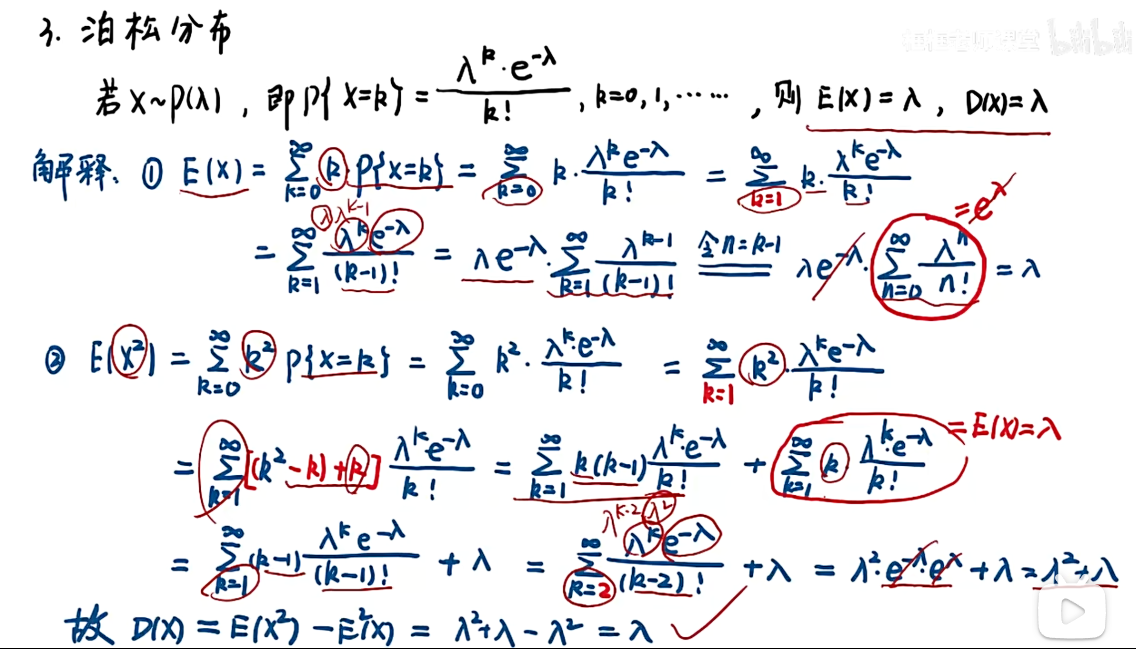 3. 泊松分布
若 X~P(λ), 即 P{X=k} = λ^k·e^{-λ}/k!, k=0,1,……, 则 E(X)=λ, D(X)=λ
解释: ① E(X) = ∑_{k=0}^{∞} k P{X=k} = ∑_{k=0}^{∞} k·λ^k e^{-λ}/k! = ∑_{k=1}^{∞} k·λ^k e^{-λ}/k!
λ λ^{k-1} =e^λ
= ∑_{k=1}^{∞} λ^k e^{-λ}/(k-1)! = λe^{-λ}·∑_{k=1}^{∞} λ^{k-1}/(k-1)! 令n=k-1 λe^{-λ}·∑_{n=0}^{∞} λ^n/n! = λ
② E(X²) = ∑_{k=0}^{∞} k² P{X=k} = ∑_{k=0}^{∞} k²·λ^k·e^{-λ}/k! = ∑_{k=1}^{∞} k²·λ^k e^{-λ}/k!
= ∑_{k=1}^{∞} [(k²-k)+k] λ^k e^{-λ}/k! = ∑_{k=1}^{∞} k(k-1) λ^k·e^{-λ}/k! + ∑_{k=1}^{∞} k λ^k·e^{-λ}/k! =E(X)=λ
λ^{k-2} λ²
= ∑_{k=1}^{∞} (k-1) λ^k e^{-λ}/(k-1)! + λ = ∑_{k=2}^{∞} λ^k e^{-λ}/(k-2)! + λ = λ²·e^{-λ}·e^λ + λ = λ²+λ
故 D(X) = E(X²) - E²(X) = λ²+λ-λ² = λ
bilibili